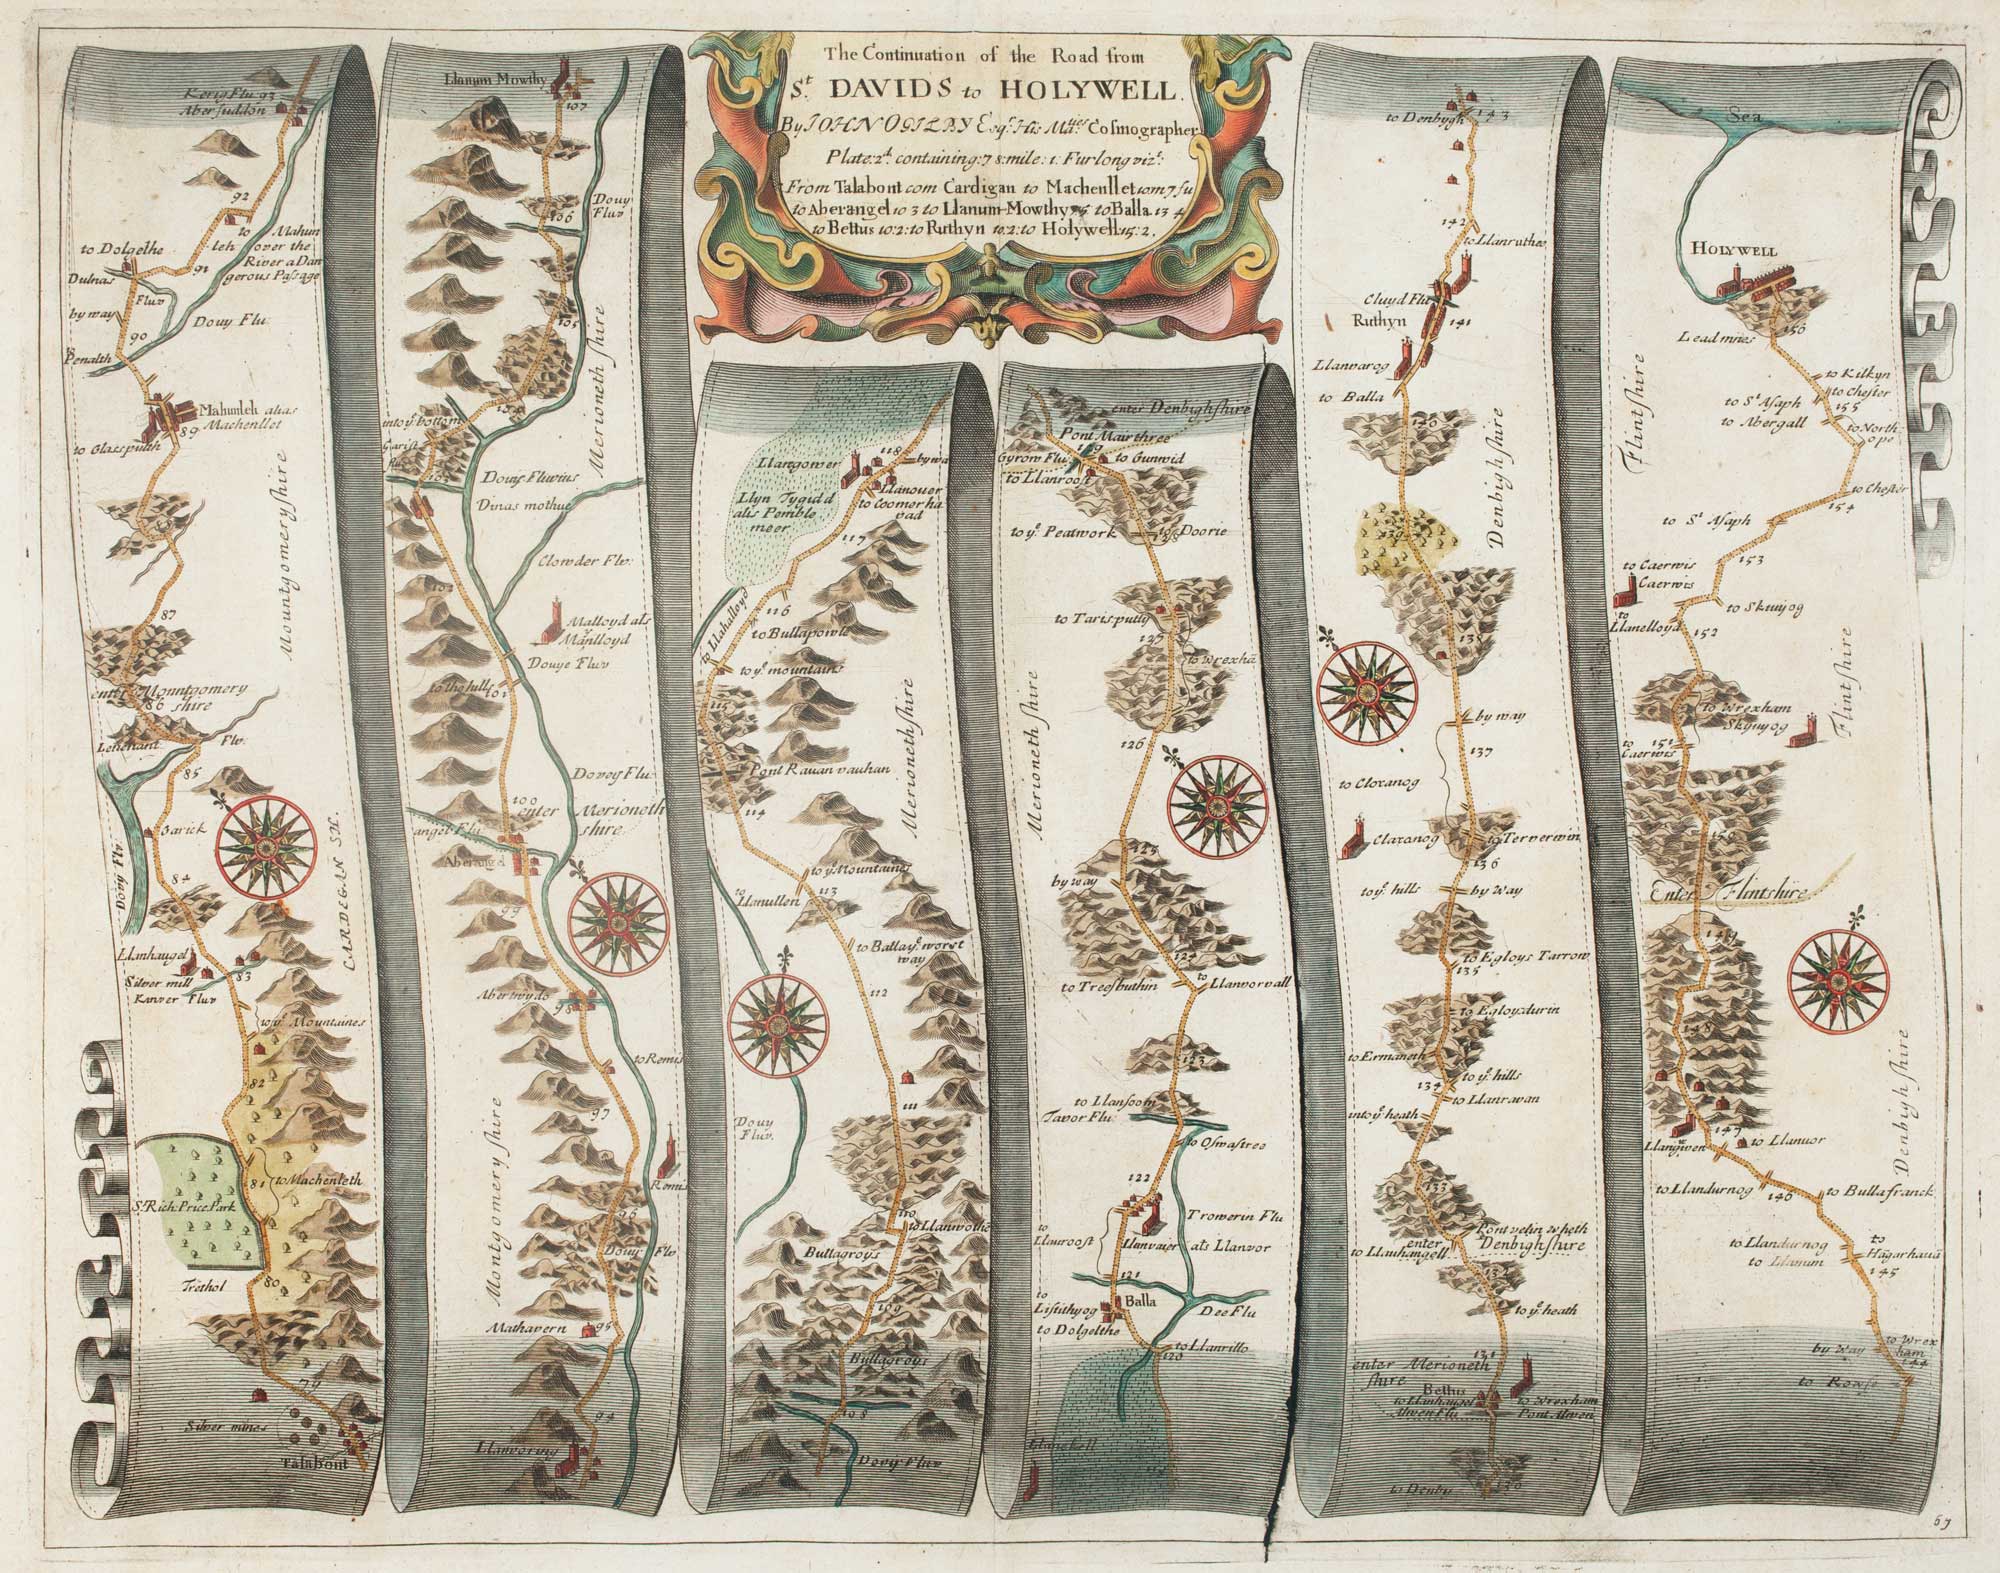 The Continuation of the Road from
St. DAVIDS to HOLYWELL.
By IOHN OGILBY Esqr. His Maties Cosmographer
Plate: 2d. containing: 78: mile: 1: Furlong vizt:
From Talabont com Cardigan to Machenllet 10 m 7 fu
to Aberangel 10 3 to Llanum-Mowthy 7 5 to Balla. 13 4
to Bettus 10: 2: to Ruthyn 10: 2: to Holywell: 15: 2.
Kerig Flu 93
Abersuddon
92
to Mahun
leh over the
River a Dan
gerous Passage
to Dolgelhe
91
Dulnas
Fluv
by way
Douy Flu
90
Penalth
Mahunleh alias
Machenllet
89
to Glasspulth
Mountgomeryshire
87
enter Monntgomery
86 shire
Flv.
85
Garick
Dovy Flv.
84
CARDEGAN SH.
Llanhaugel
83
Silver mill
Kanver Fluv
to ye Mountaines
82
81
to Machenleth
Sr. Rich: Price Park
Trethol
80
79
Silver mines
Talabont
Llanum Mowthy
107
Douy
Fluv
106
105
Merioneth shire
104
into ye bottom
Garist
flu
103
Douye Fluvius
Dinas mothue
Clowder Flv:
102
Malloyd als
Manlloyd
Douye Fluv
to the hills
101
Dovey Flu:
100
enter Merioneth
shire
angel Flu
Aberangel
99
Abertwydo
98
to Remis
97
Montgomery shire
Remis
96
Douy Flv
Mathavern
95
94
Llanvoring
Llangower
118
by wa
Llyn Tygidd
alis Pemble
meer
Llanouer
to Coomerha
vad
117
116
to Llahalloyd
to Bullapowle
to ye mountains
115
Pont Rauan vauhan
114
Merionethshire
to ye Mountains
to
Llanullen
113
to Balla ye worst
way
112
Douy
Fluv.
111
110
to Llanwothe
Bullagroys
109
Bullagroys
108
Dovy Fluv
enter Denbighshire
Pont Mairthree
Gyrow Flu
129
to Gunwid
to Llanroost
to ye Peatwork
128
Doorie
to Tarisputty
127
to Wrexha
Merioneth shire
126
125
by way
124
to Treesbuthin
to
Llanvorvall
123
to Llansoom
Tavor Flu
to Oswastree
122
Trowerin Flu
to
Llanroost
Llanvaier
als Llanvor
121
to
Listithyog
Balla
Dee Flu
to Dolgelthe
to Llanrillo
120
Llanekell
to Denbygh
143
142
to Llanruthes
Cluyd Flu
Ruthyn
141
Llanvarog
to Balla
140
Denbigh shire
139
138
by way
137
to Cloxanog
Claxanog
to Terverwin
136
to ye hills
by Way
to Egloys Tarrow
135
to Egloysdurin
to Ermaneth
134
to ye hills
to Llanravan
into ye heath
133
Pont velin wheth
enter Denbighshire
to Llanhangell
132
to ye heath
131
enter Merioneth
shire
Bettus
to Llanhangel
to Wrexham
Alwen Flu
Pont Alwen
130
to Denby
Sea
HOLYWELL
156
Lead mies
Flintshire
to Kilkyn
to Chester
to St Asaph
155
to Abergall
to North
ope
to Chester
154
to St Asaph
153
to Caerwis
Caerwis
to Skuiyog
to
Llanelloyd
152
to Wrexham
Skyuyog
151
to
Caerwis
Flintshire
150
Enter Flintshire
149
148
Denbigh shire
147
to Llanuor
Llangwen
to Llandurnog
146
to Bullafranck
to Llandurnog
to
Hagarhaus
to Llanum
145
by Way
to Wrex
ham
144
to Rowse
67